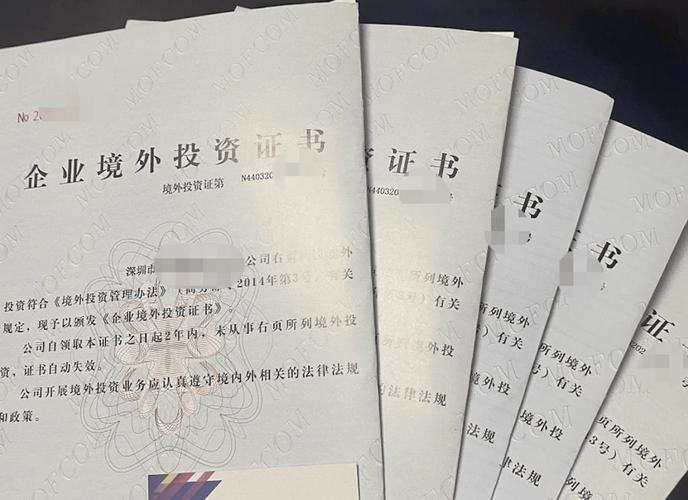 No 20
企业境外投资证书
境外投资证第 N440320 号
深圳市 公司右页所列境外
投资符合《境外投资管理办法》(商务部 2014年第3号)有关
规定，现予以颁发《企业境外投资证书》。
公司自领取本证书之日起2年内，未从事右页所列境外投
资，证书自动失效。
公司开展境外投资业务应认真遵守境内外相关的法律法规
和政策。
MOFCOM
资证书
N440320 号
所列境外
3号）有关
列境外投
法律法规
MOFCOM
证书
号
所列境外
号）有关
境外投
法法规
MOFCOM
证书
号
所列境外
号）有关
境外投
法规
MOFCOM
证
202
页所列境外
3号）有关